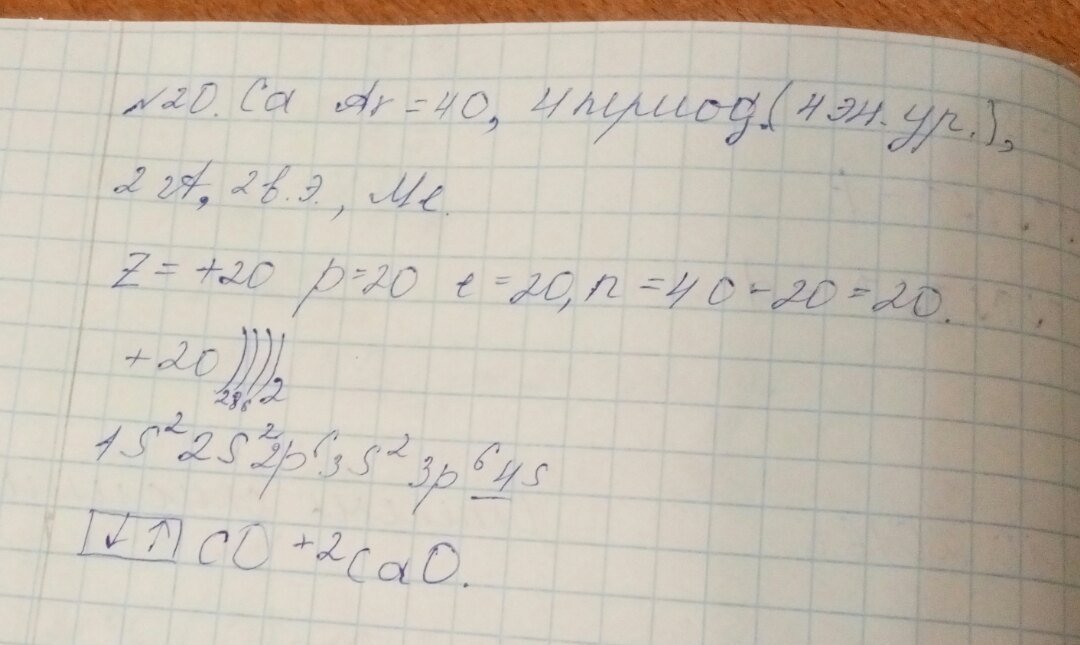 №20. Ca Ar = 40, 4 период. (4 эн. ур.),
2 гА, 2 в.э., Ме.
Z = +20 p=20 e=20, n = 40-20=20.
+20 ))))
2 8 8 2
1s² 2s² 2p⁶ 3s² 3p⁶ 4s
↓↑ CO +2 CaO.